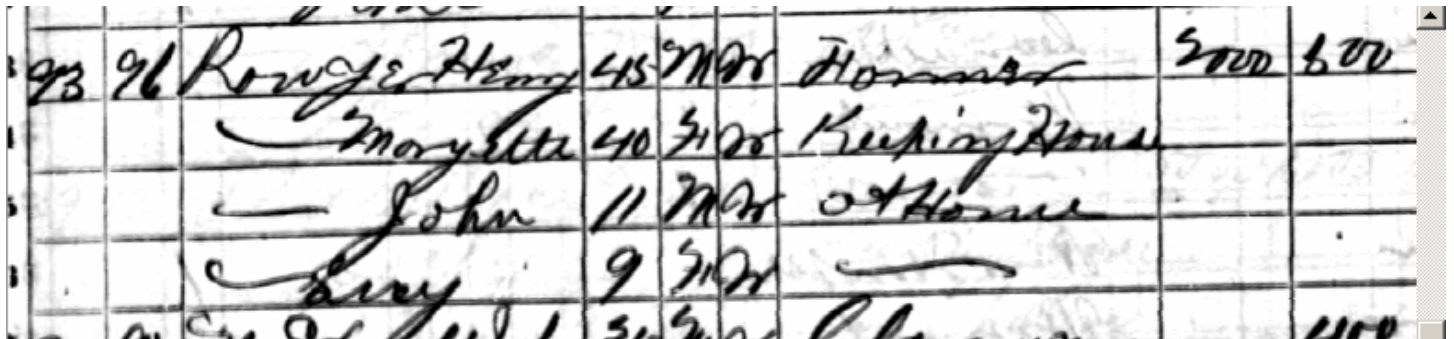 93 96 Rowye Henry 45 M W Farmer 2000 600
— Maryette 40 F W Keeping House
— John 11 M W at Home
— 9 F W —
400